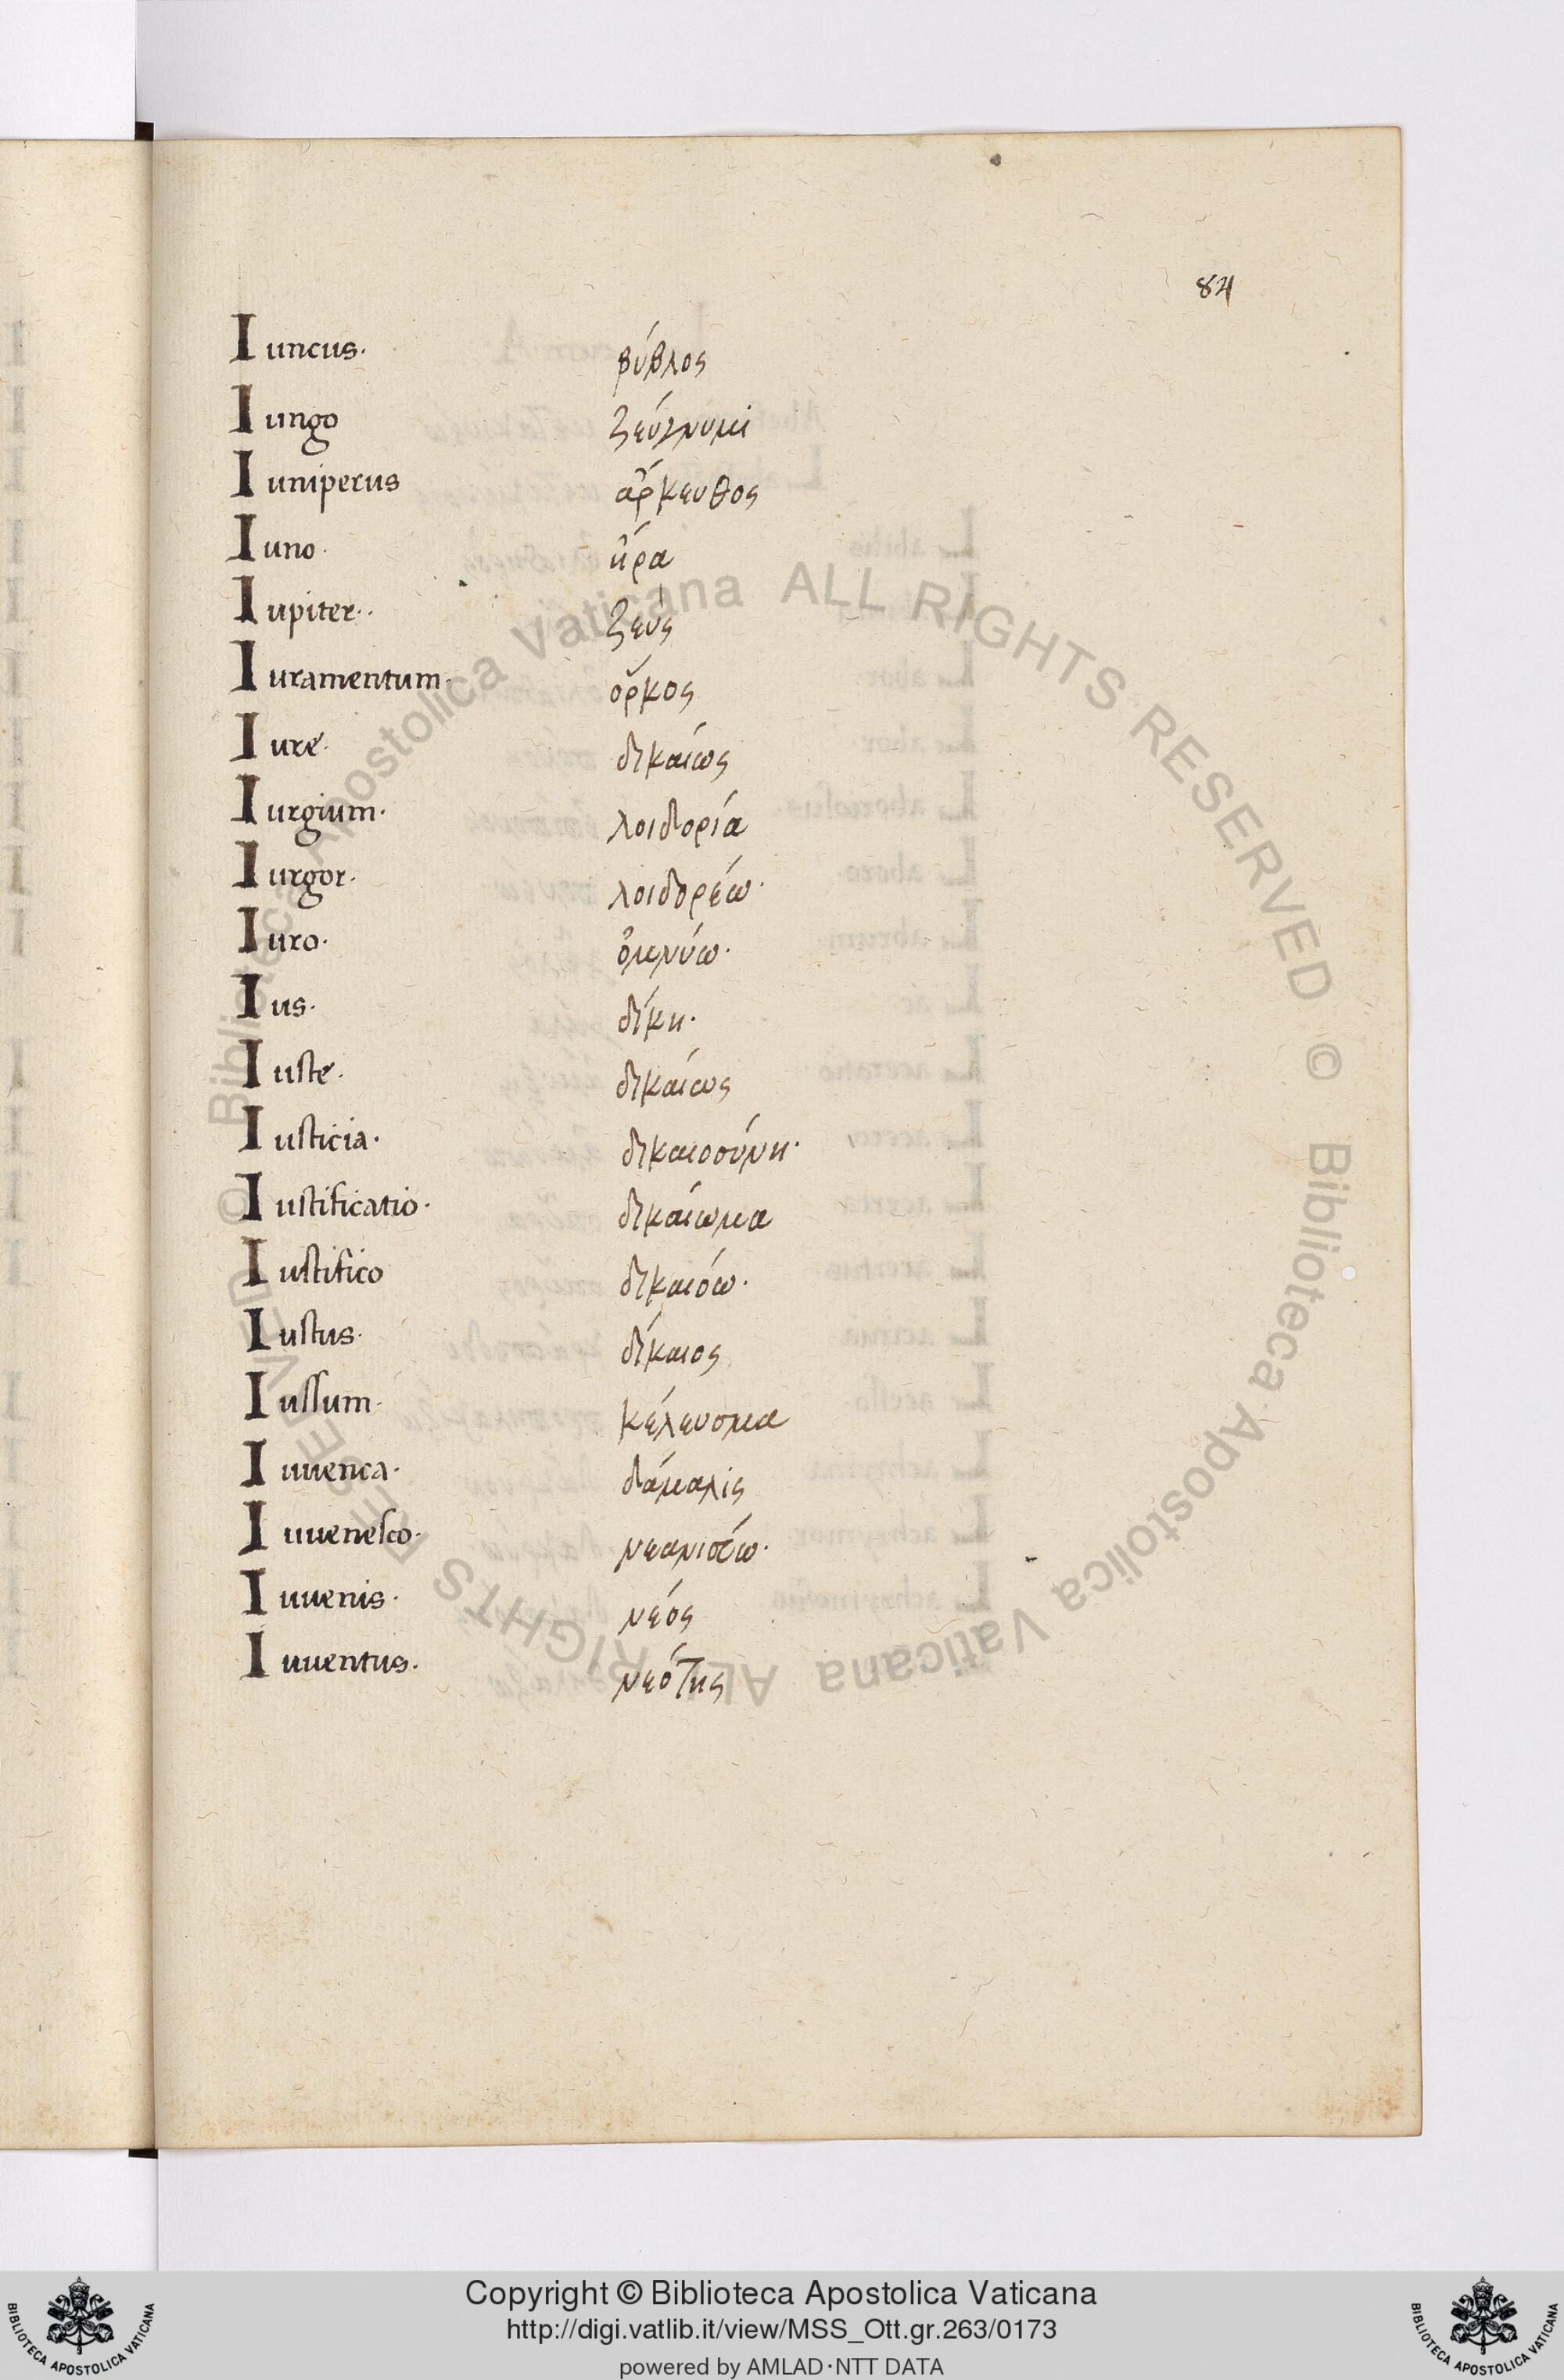 84
Iuncus. βύβλος
Iungo ζεύγνυμι
Iuniperus ἄρκευθος
Iuno. ἥρα
Iupiter.. ζεὺς
Iuramentum. ὅρκος
Iure. δικαίως
Iurgium. λοιδορία
Iurgor. λοιδορέω.
Iuro. ὀμνύω.
Ius. δίκη.
Iuste. δικαίως
Iusticia. δικαιοσύνη.
Iustificatio. δικαίωμα
Iustifico δικαιόω.
Iustus. δίκαιος
Iussum. κέλευσμα
Iuuenca. δάμαλις
Iuuenesco. νεανιστέω.
Iuuenis. νέός
Iuuentus. νεότης
© Biblioteca Apostolica Vaticana ALL RIGHTS RESERVED © Biblioteca Apostolica Vaticana ALL RIGHTS RESERVED
Copyright © Biblioteca Apostolica Vaticana
http://digi.vatlib.it/view/MSS_Ott.gr.263/0173
powered by AMLAD·NTT DATA
BIBLIOTECA APOSTOLICA VATICANA
BIBLIOTECA APOSTOLICA VATICANA